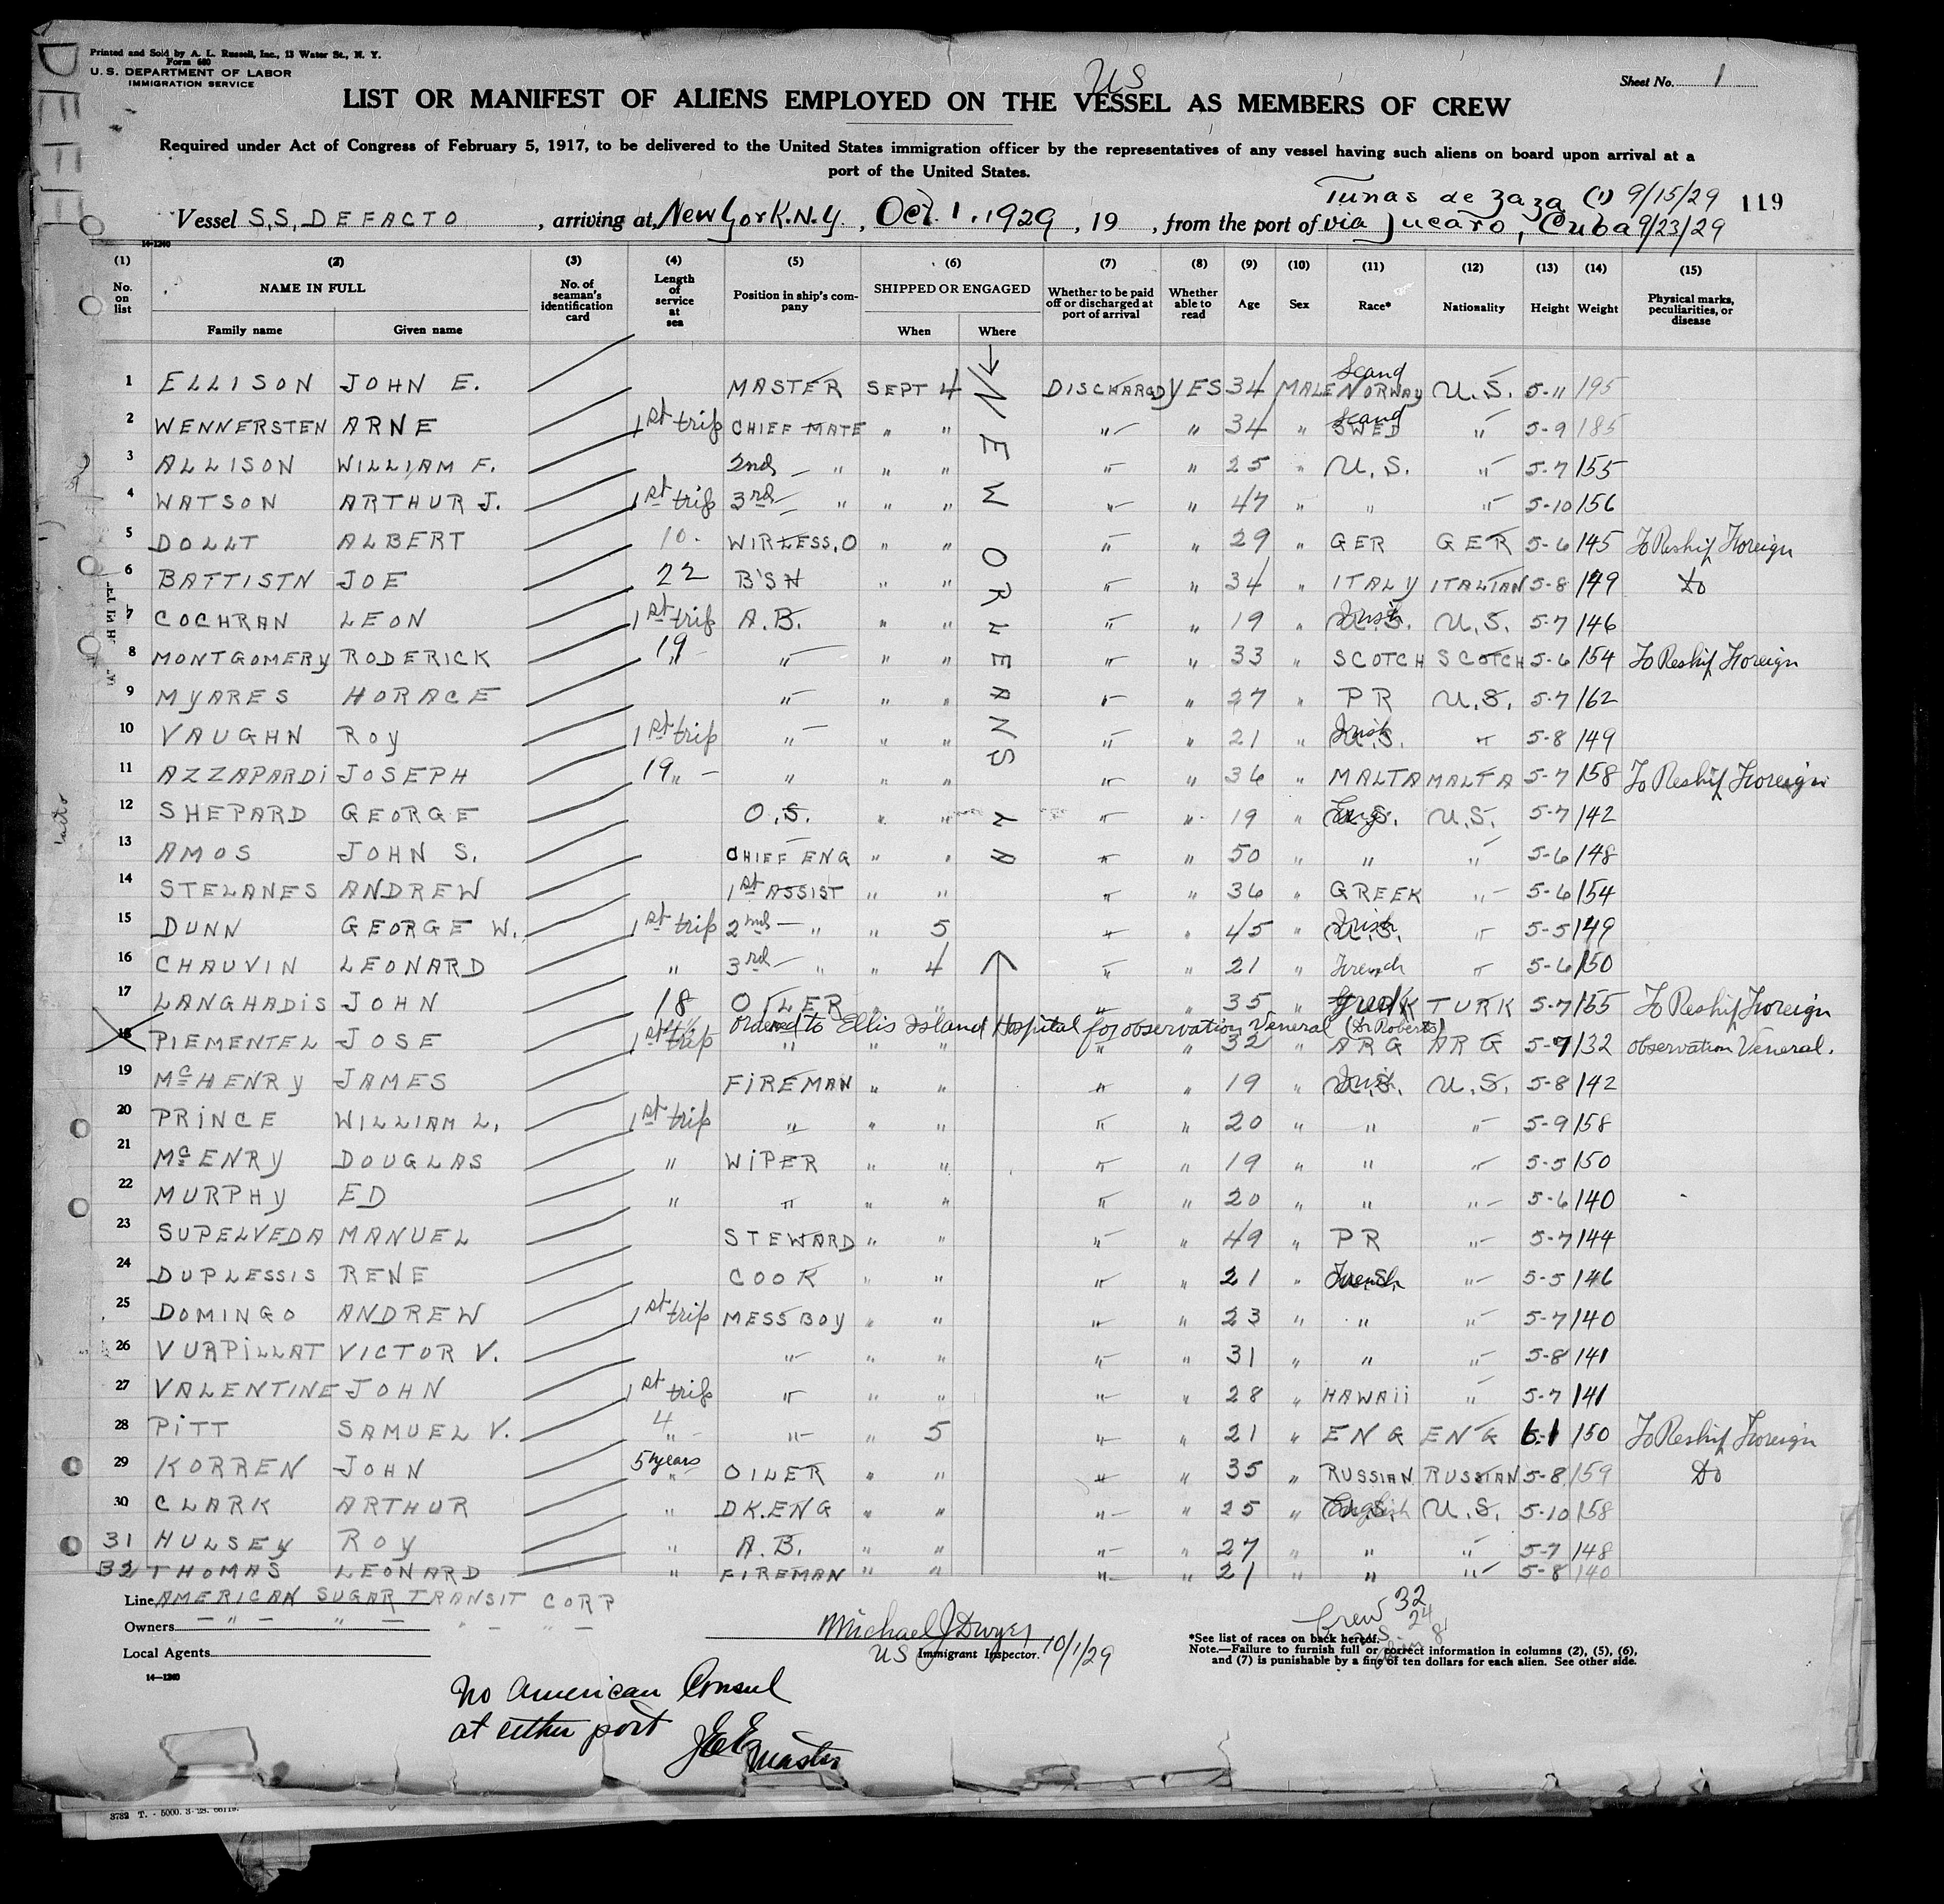 Printed and Sold by A. L. Russell, Inc., 13 Water St., N. Y.
Form 680
U. S. DEPARTMENT OF LABOR
IMMIGRATION SERVICE
US
Sheet No. 1
LIST OR MANIFEST OF ALIENS EMPLOYED ON THE VESSEL AS MEMBERS OF CREW
Required under Act of Congress of February 5, 1917, to be delivered to the United States immigration officer by the representatives of any vessel having such aliens on board upon arrival at a
port of the United States.
Tunas de Zaza (1) 9/15/29 119
Vessel S.S. DEFACTO, arriving at New York. N.Y., Oct. 1. 1929, 19 , from the port of via Jucaro, Cuba 9/23/29
14-1240
(1) (2) (3) (4) (5) (6) (7) (8) (9) (10) (11) (12) (13) (14) (15)
No. on list NAME IN FULL No. of seaman's identification card Length of service at sea Position in ship's company SHIPPED OR ENGAGED Whether to be paid off or discharged at port of arrival Whether able to read Age Sex Race* Nationality Height Weight Physical marks, peculiarities, or disease
Family name Given name When Where
NEW ORLEANS LA
1 ELLISON JOHN E. MASTER SEPT 4 DISCHARGD YES 34 MALE Scand NORWAY U.S. 5-11 195
2 WENNERSTEN ARNE 1st trip CHIEF MATE " " " " 34 " Scand SWED " 5-9 185
3 ALLISON WILLIAM F. 2nd " " " " " 25 " U.S. " 5-7 155
4 WATSON ARTHUR J. 1st trip 3rd " " " " " 47 " " " 5-10 156
5 DOLLT ALBERT 10. WIRLESS.O " " " " 29 " GER GER 5-6 145 To Reship Foreign
6 BATTISTN JOE 22 B'SN " " " " 34 " ITALY ITALIAN 5-8 149 Do
7 COCHRAN LEON 1st trip A.B. " " " " 19 " Irish U.S. U.S. 5-7 146
8 MONTGOMERY RODERICK 19 " " " " " " 33 " SCOTCH SCOTCH 5-6 154 To Reship Foreign
9 MYARES HORACE " " " " " 27 " PR U.S. 5-7 162
10 VAUGHN ROY 1st trip " " " " " 21 " Irish U.S. " 5-8 149
11 AZZAPARDI JOSEPH 19 " " " " " " 36 " MALTA MALTA 5-7 158 To Reship Foreign
12 SHEPARD GEORGE O.S. " " " " 19 " Eng. U.S. U.S. 5-7 142
13 AMOS JOHN S. CHIEF ENG " " " " 50 " " " 5-6 148
14 STELANES ANDREW 1st ASSIST " " " " 36 " GREEK " 5-6 154
15 DUNN GEORGE W. 1st trip 2nd " " 5 " " 45 " Irish U.S. " 5-5 149
16 CHAUVIN LEONARD " 3rd " " 4 " " 21 " French " 5-6 150
17 LANGHADIS JOHN 18 OILER " " " " 35 " Greek TURK 5-7 155 To Reship Foreign
ordered to Ellis Island Hospital for observation Veneral (Dr Roberts)
18 PIEMENTEL JOSE 1st trip " " " " " 32 " ARG ARG 5-7 132 observation Veneral.
19 McHENRY JAMES FIREMAN " " " " 19 " Irish U.S. U.S. 5-8 142
20 PRINCE WILLIAM L. 1st trip " " " " " 20 " " " 5-9 158
21 McENRY DOUGLAS " WIPER " " " " 19 " " " 5-5 150
22 MURPHY ED " " " " " " 20 " " " 5-6 140
23 SUPELVEDA MANUEL STEWARD " " " " 49 " PR " 5-7 144
24 DUPLESSIS RENE COOK " " " " 21 " French U.S. " 5-5 146
25 DOMINGO ANDREW 1st trip MESSBOY " " " " 23 " " " 5-7 140
26 VURPILLAT VICTOR V. " " " " " 31 " " " 5-8 141
27 VALENTINE JOHN 1st trip " " " " " 28 " HAWAII " 5-7 141
28 PITT SAMUEL V. 4 " " " 5 " " 21 " ENG ENG 6-1 150 To Reship Foreign
29 KORREN JOHN 5 years " OILER " " " " 35 " RUSSIAN RUSSIAN 5-8 159 Do
30 CLARK ARTHUR " DK.ENG " " " " 25 " English U.S. U.S. 5-10 158
31 HULSEY ROY " A.B. " " " " 27 " " " 5-7 148
32 THOMAS LEONARD " FIREMAN " " " " 21 " " " 5-8 140
Line AMERICAN SUGAR TRANSIT CORP
Owners " " " "
Local Agents
14-1240
Michael J Dwyer
US Immigrant Inspector. 10/1/29
Crew 32
U.S. 24
Alien 8
*See list of races on back hereof.
Note.—Failure to furnish full or correct information in columns (2), (5), (6),
and (7) is punishable by a fine of ten dollars for each alien. See other side.
No American Consul
at either port
JEE
Master
3782 T. - 5000. 3-28.